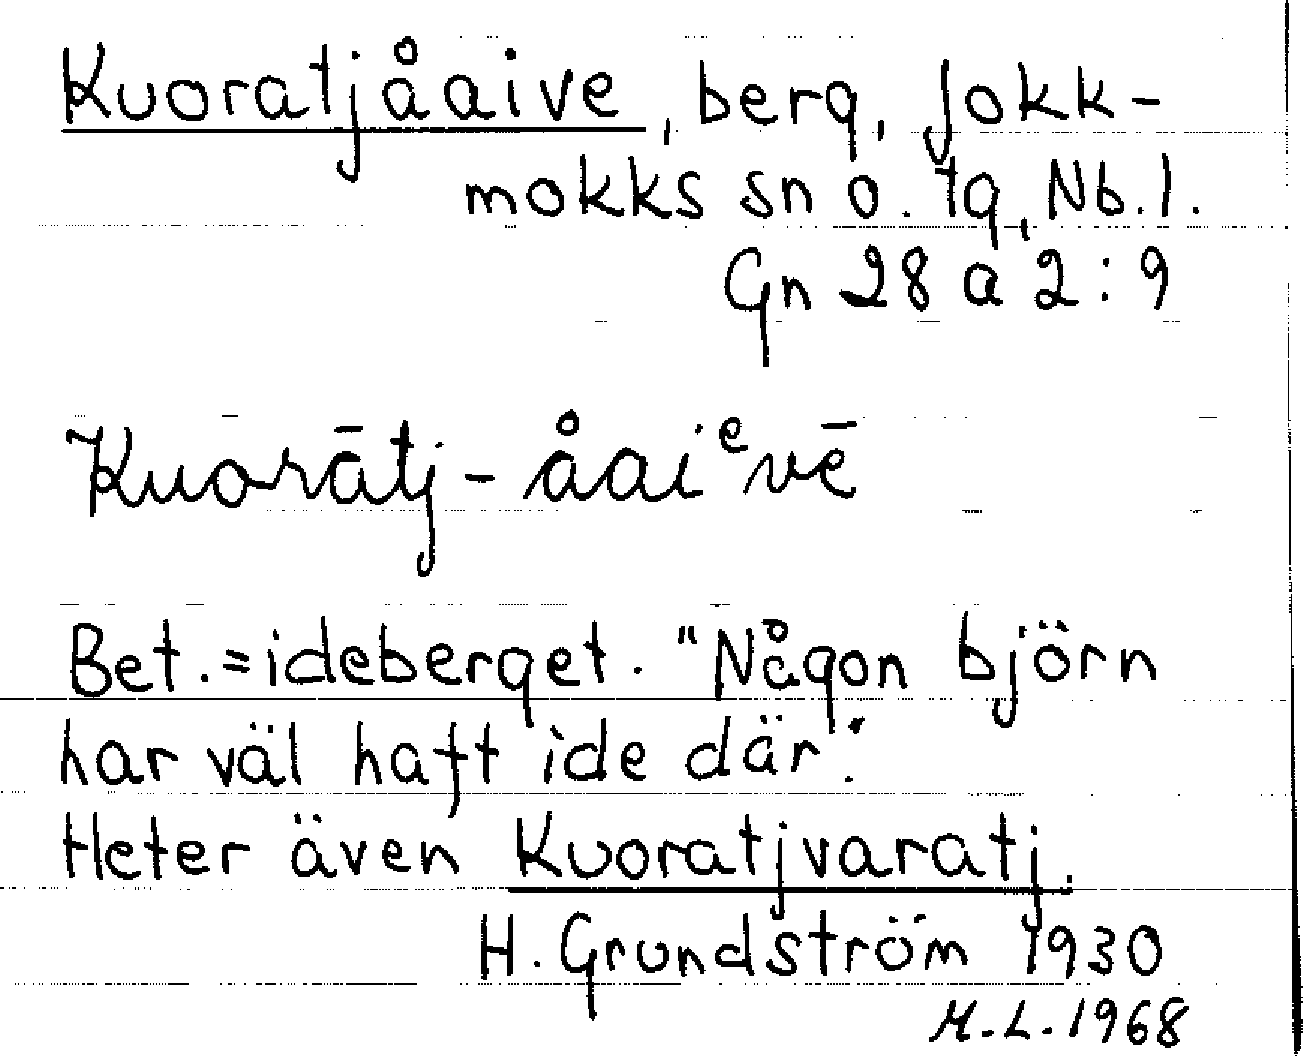 Kuoratjåaive, berg, Jokk-
mokks sn o. tg, Nb.l.
Gn 28 a 2:9
Kuorātj-åaiᵉvē
Bet.=ideberget. "Någon björn
har väl haft ide där".
Heter även Kuoratjvaratj.
H. Grundström 1930
M.L. 1968